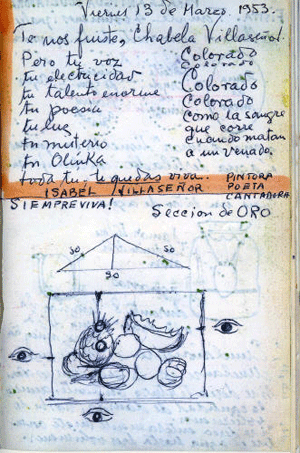 Viernes 13 de Marzo. 1953.
Te nos fuiste, Chabela Villaseñor
Pero tu voz
tu electricidad
tu talento enorme
tu poesia
tu luz
tu misterio
tu Olinka
toda tu. te quedas viva.
Colorado
Colorado
Colorado
Colorado
como la sangre
que corre
cuando matan
a un venado.
ISABEL VILLASEÑOR
PINTORA
POETA
CANTADORA
SIEMPREVIVA!
Seccion de ORO
50
50
90